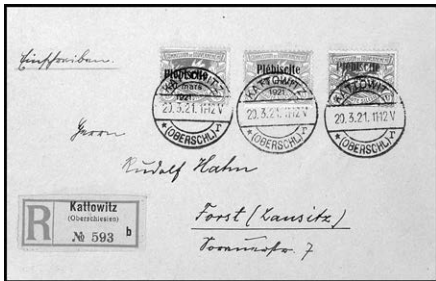 Einschreiben.
COMMISSION DE GOUVERNEMENT
Plébiscite
20 mars
1921.
Plébiscite
1921.
Plébiscite
KATTOWITZ
20.3.21. 11-12 V
* (OBERSCHL.) *
KATTOWITZ
20.3.21. 11-12 V
* (OBERSCHL.) *
KATTOWITZ
20.3.21. 11-12 V
* (OBERSCHL.) *
Herrn
Rudolf Hahn
Forst (Lausitz)
Sorauerstr. 7
R
Kattowitz
(Oberschlesien)
№ 593 b